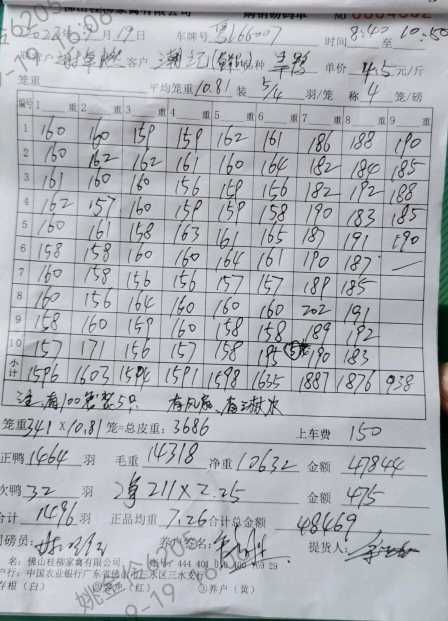 佛山桂柳家禽有限公司
2022年 月19日 车牌号 粤L66007 时间 8:40 10:50
客户 单价 4.5元/斤
笼重 平均笼重 10.81 装 5/4 羽/笼 称 4 笼/磅
编号 1 2 3 4 5 6 7 8 9
1 160 160 159 159 162 161 186 188 190
2 160 162 162 161 160 164 182 184 185
3 161 160 160 156 159 156 182 192 188
4 162 157 160 159 159 158 190 183 185
5 160 161 158 163 161 165 187 191 190
6 158 158 160 160 164 161 190 187 —
7 160 158 156 156 157 157 189 185
8 160 156 164 160 160 160 202 191
9 158 160 159 160 158 158 189 192
10 157 171 156 157 158 195 190 183
小计 1596 1603 1594 1591 1598 1635 1887 1876 938
注: 有100笼装5只
笼重 341 X 10.81 笼=总皮重: 3686 上车费 150
正鸭 1464 羽 毛重 14318 净重 10632 金额 47844
次鸭 32 羽 净 211 X 2.25 金额 475
合计 1496 羽 正品均重 7.26 合计总金额 48469
司磅员: 养户签名: 提货人:
名: 佛山桂柳家禽有限公司
户行: 中国农业银行广东省佛山市三水区三水支行
存根(白) (红) ③养户(黄)